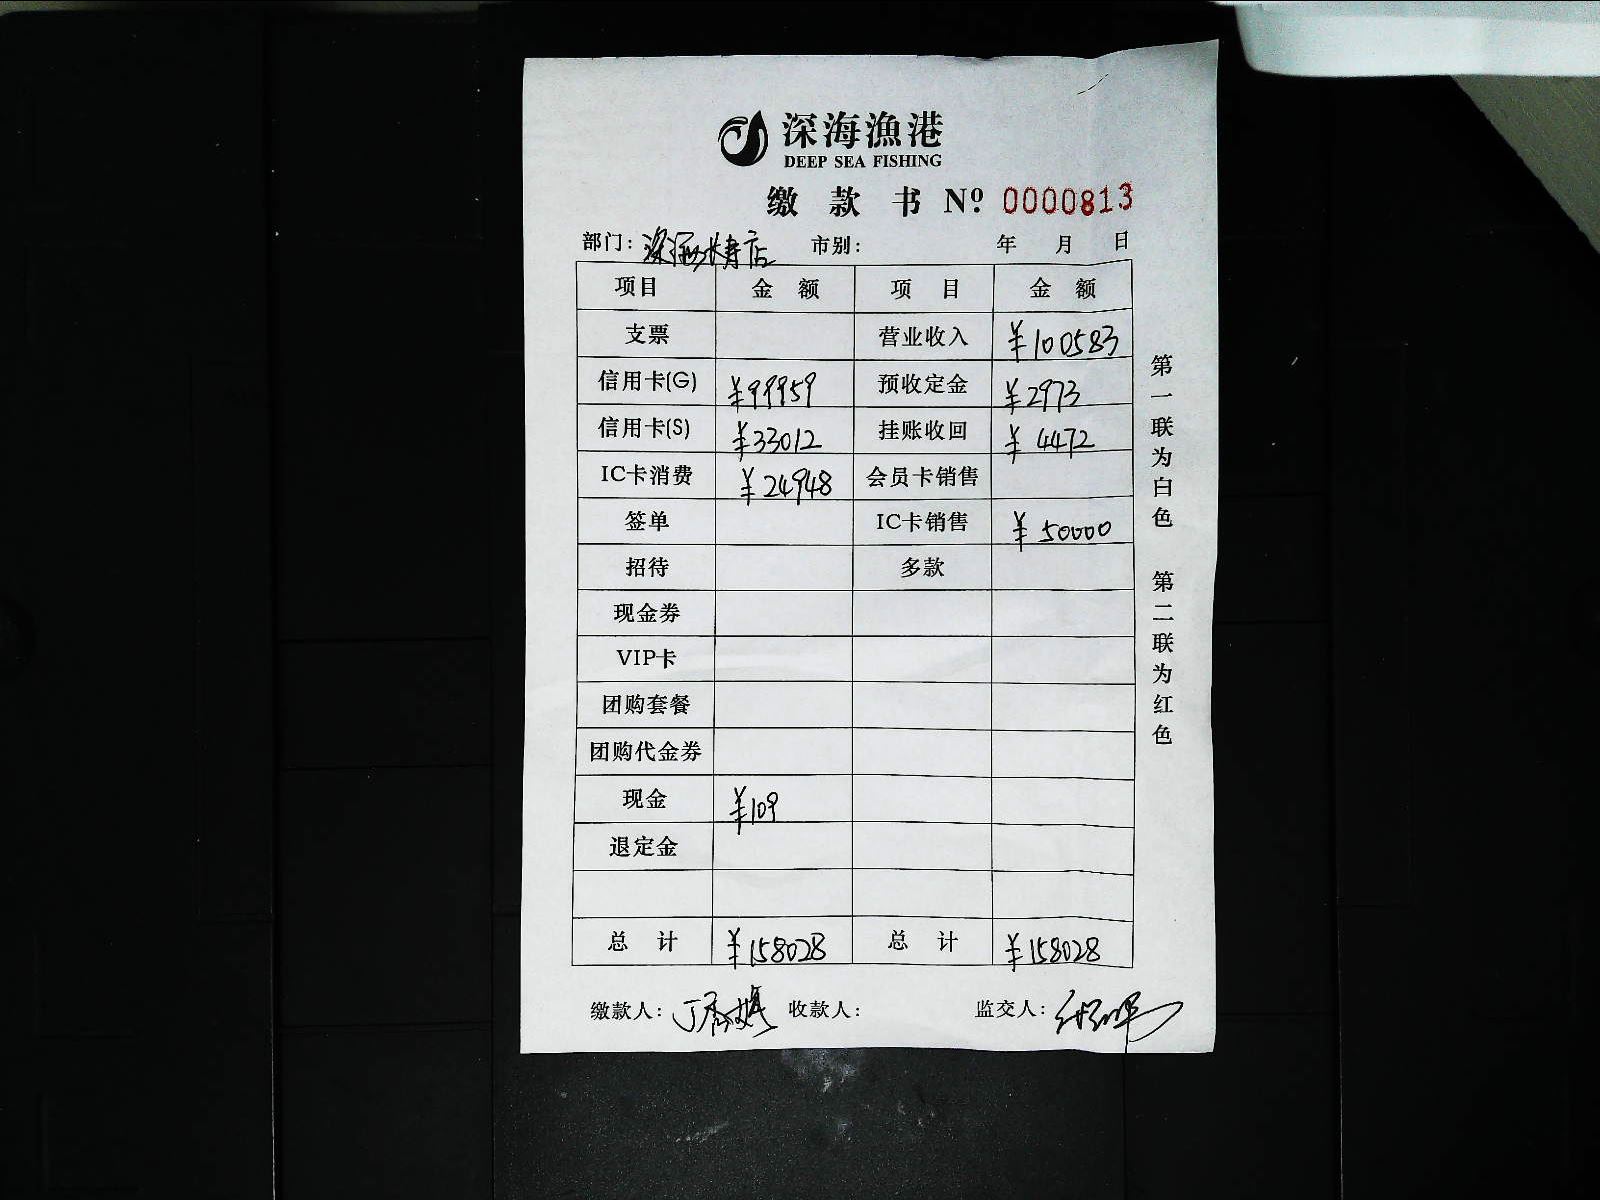 深海漁港
DEEP SEA FISHING
缴 款 书 Nº 0000813
部门: 长寿店 市别: 年 月 日
项目 金 额 项 目 金 额
支票 营业收入 ¥100583
信用卡(G) ¥99959 预收定金 ¥2973
信用卡(S) ¥33012 挂账收回 ¥4472
IC卡消费 ¥24948 会员卡销售
签单 IC卡销售 ¥50000
招待 多款
现金券
VIP卡
团购套餐
团购代金券
现金 ¥109
退定金
总 计 ¥158028 总 计 ¥158028
缴款人: 收款人: 监交人:
第一联为白色 第二联为红色